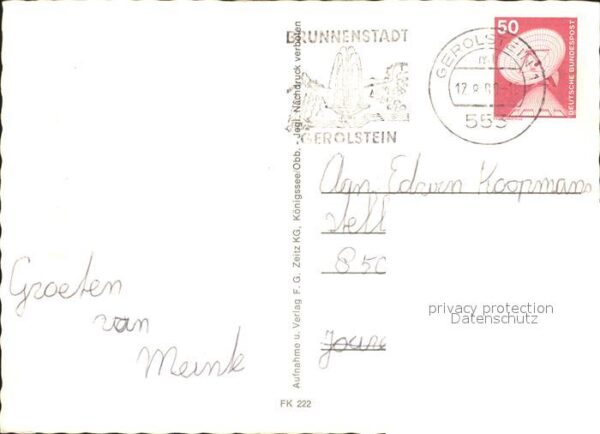 BRUNNENSTADT
GEROLSTEIN
GEROLSTEIN 1
m
553
50
DEUTSCHE BUNDESPOST
Aan Edwin Koopmans
8 50
Joure
privacy protection
Datenschutz
Groeten
van
Meink
Aufnahme u. Verlag F. G. Zeitz KG, Königssee/Obb. - Jegl. Nachdruck verboten
FK 222